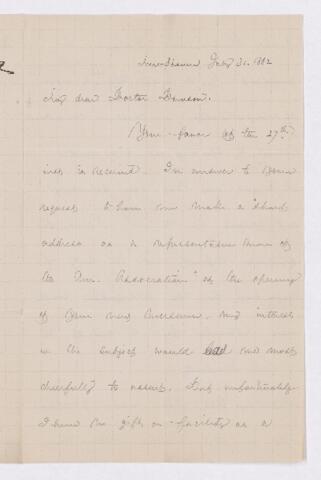 New-Haven July 31. 1882
My dear Doctor Dawson.
Your favor of the 27th
inst is received. In answer to your
request to have me make a "short
address as a representative man of
the Am. Association" at the opening
of your new Museum, my interest
in the subject would lead me most
cheerfully to assent. But unfortunately
I have no gift or facility as a